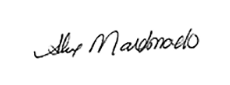 Alex Maldonado